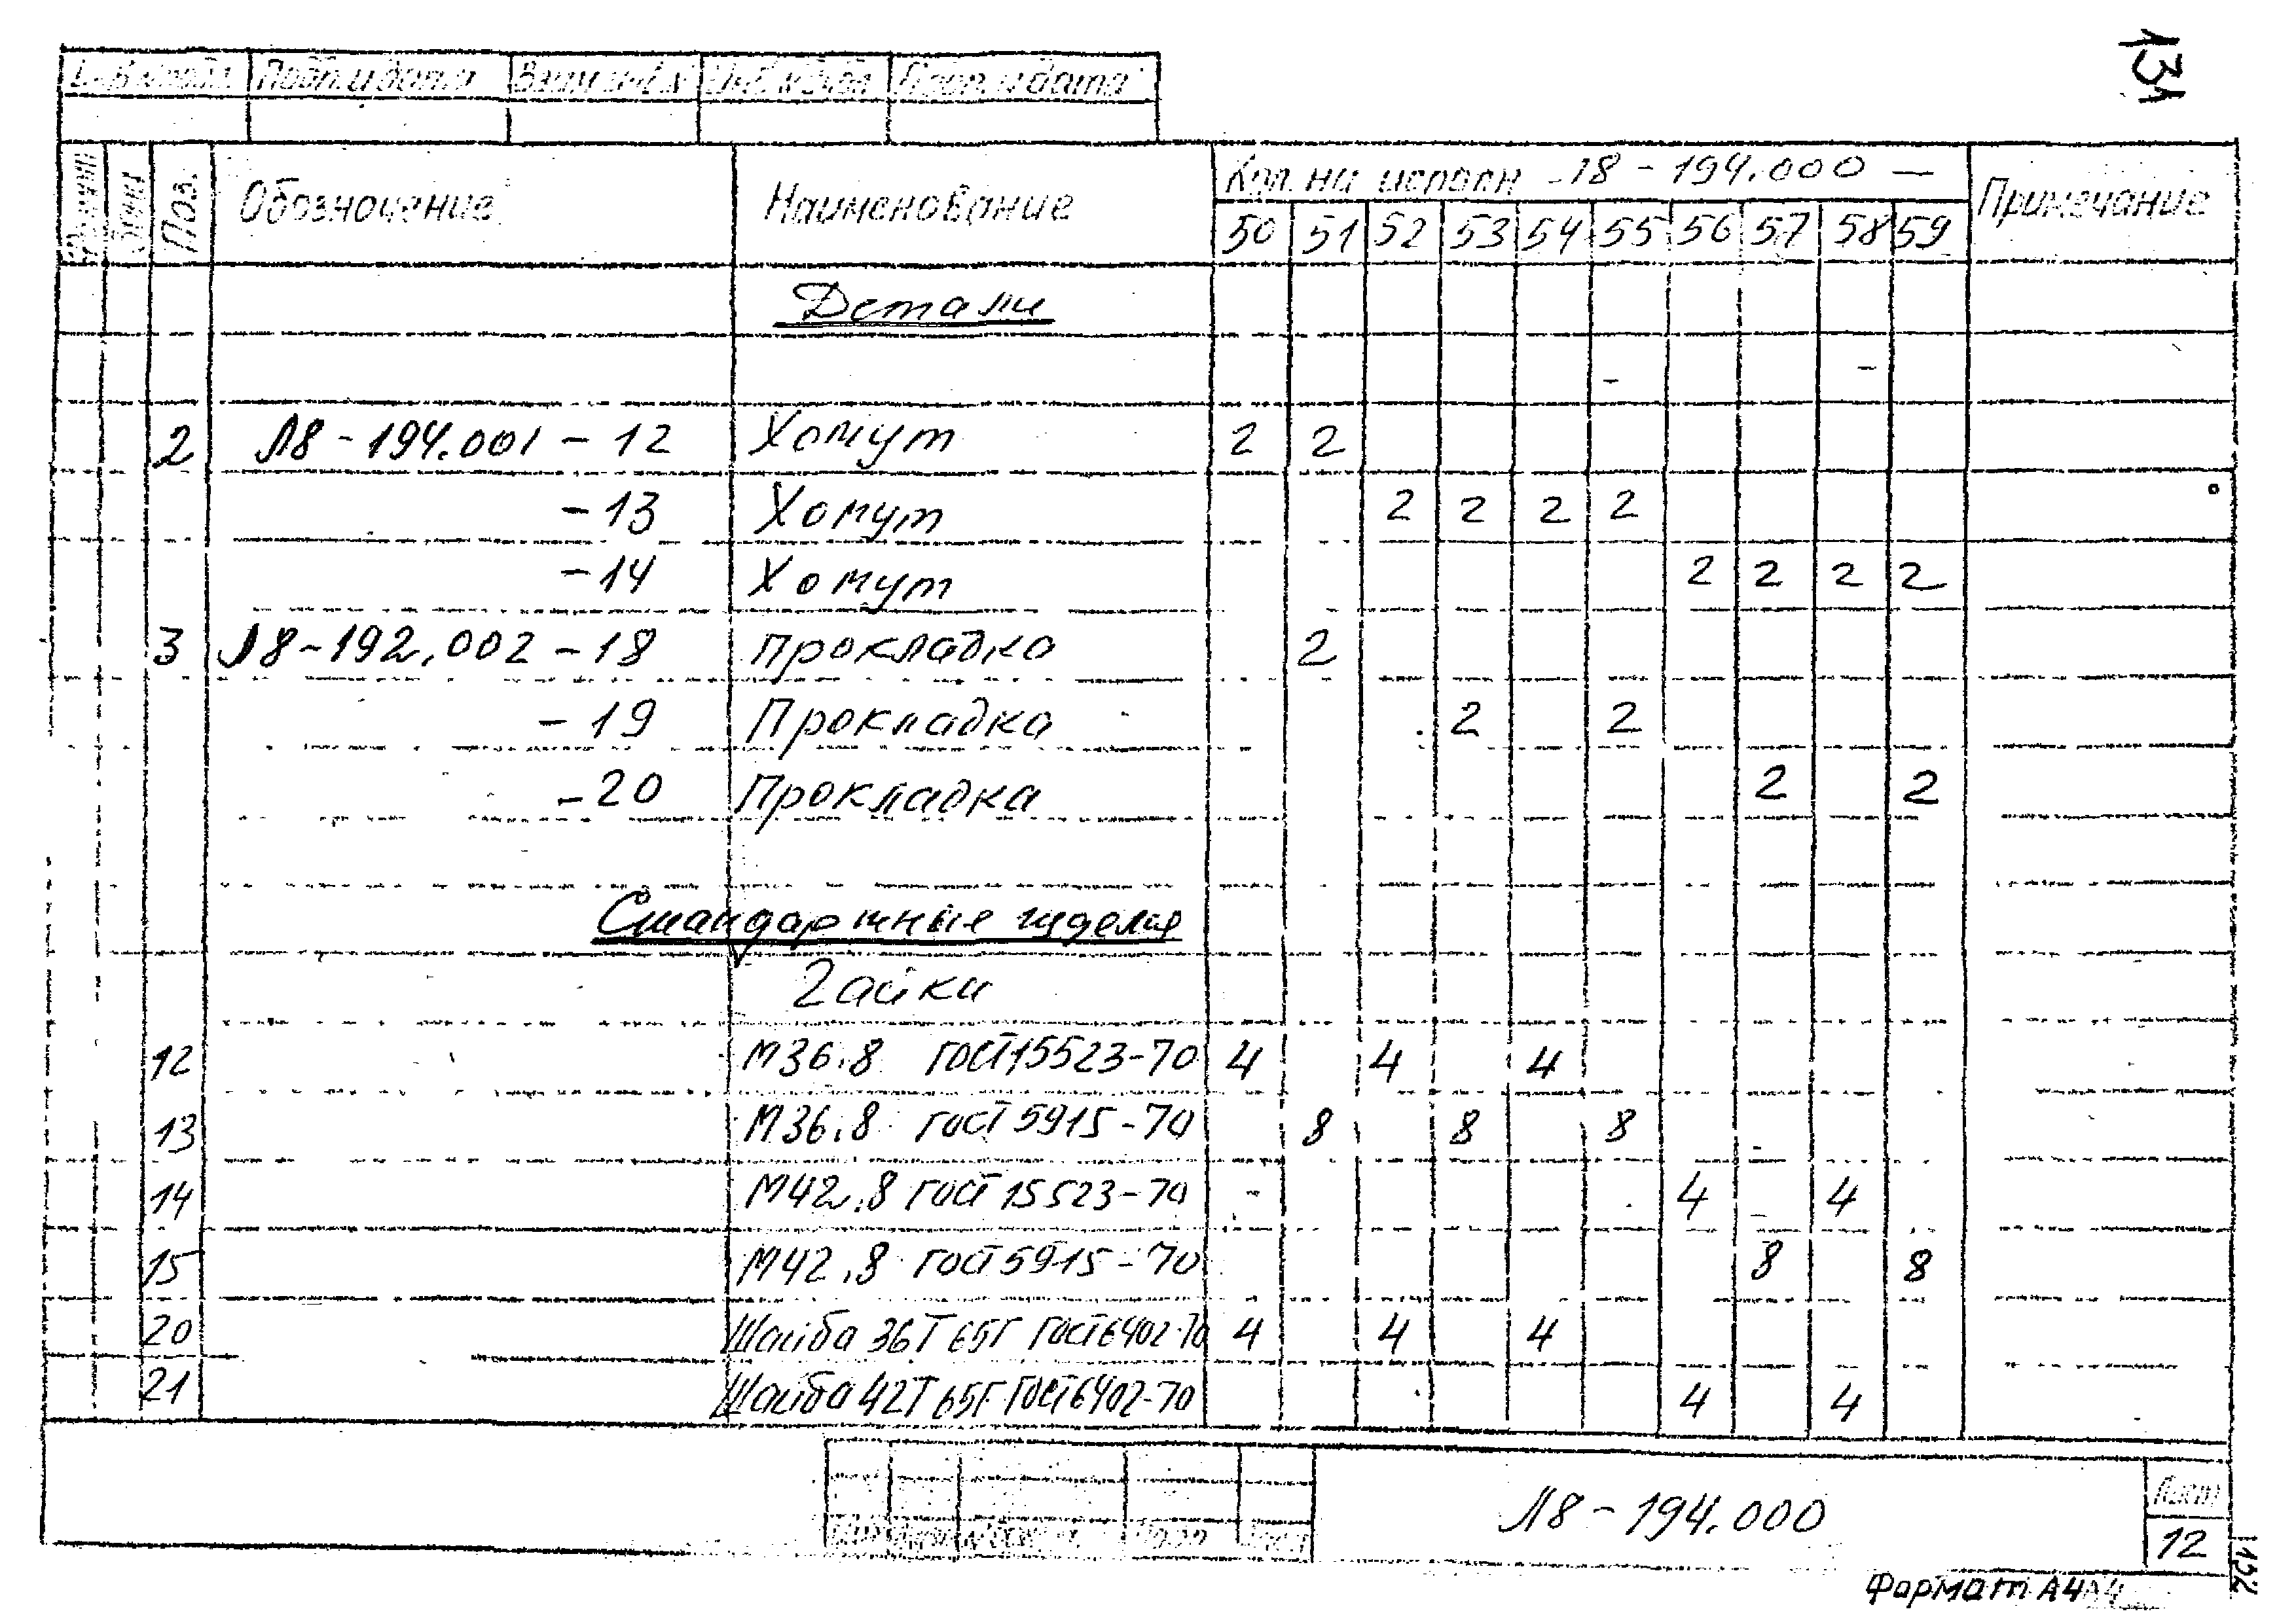 131
Подп. и дата Взам. инв. № Подп. и дата
Поз. Обозначение Наименование Кол. на исполн Л8 - 194.000 — Примечание
50 51 52 53 54 55 56 57 58 59
Детали
2 Л8 - 194.001 - 12 Хомут 2 2
- 13 Хомут 2 2 2 2
- 14 Хомут 2 2 2 2
3 Л8 - 192.002 - 18 Прокладка 2
- 19 Прокладка 2 2
- 20 Прокладка 2 2
Стандартные изделия
Гайки
12 М36.8 ГОСТ 15523-70 4 4 4
13 М36.8 ГОСТ 5915-70 8 8 8
14 М42.8 ГОСТ 15523-70 4 4
15 М42.8 ГОСТ 5915-70 8 8
20 Шайба 36Т 65Г ГОСТ 6402-70 4 4 4
21 Шайба 42Т 65Г ГОСТ 6402-70 4 4
Л8 - 194.000
Лист
12
Формат А4